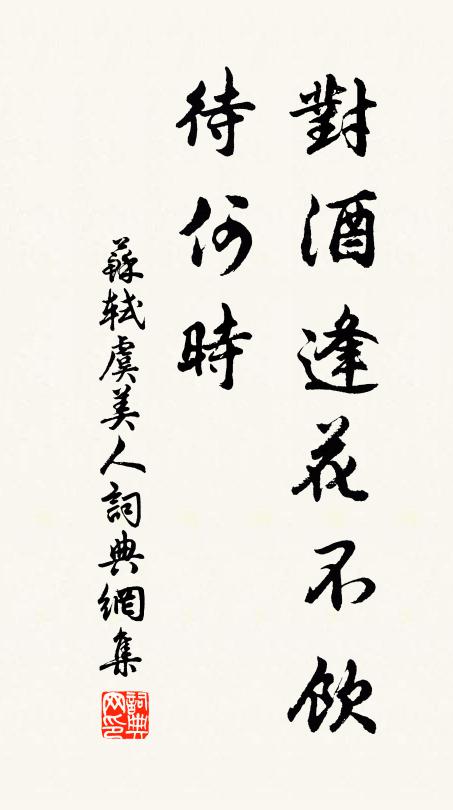 對酒逢花不飲
待何時
蘇軾虞美人詞典網集
詞典
网印